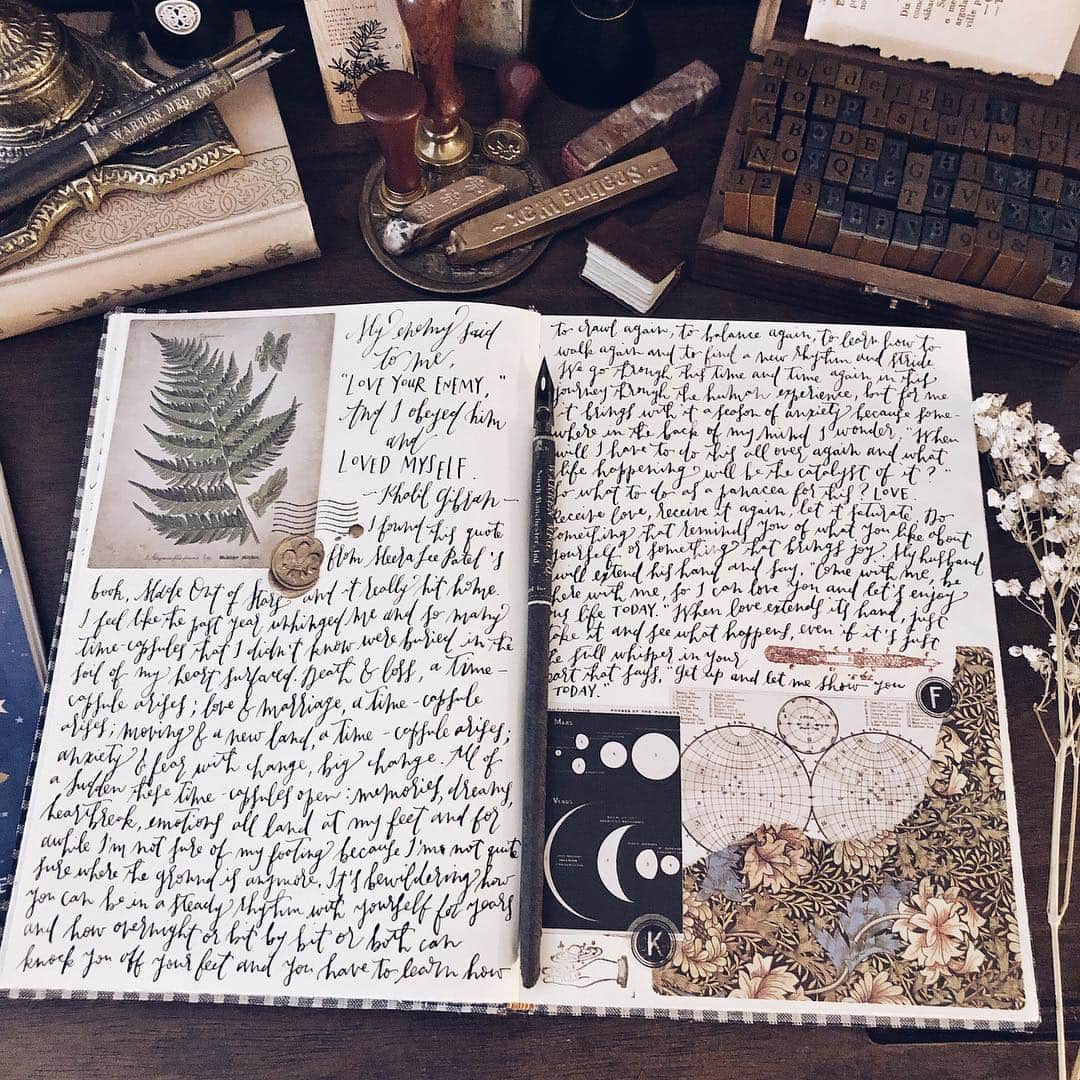 WARREN MED. CO
My enemy said
to me,
"LOVE YOUR ENEMY,"
And I obeyed him
and
LOVED MYSELF.
- Khalil Gibran -
I found this quote
from Meera Lee Patel's
book, Made Out of Stars and it really hit home.
I feel like the past year unhinged me and so many
time-capsules that I didn't know were buried in the
soil of my heart surfaced. Death & loss, a time-
capsule arises; love & marriage, a time-capsule
arises; moving & a new land, a time-capsule arises;
anxiety & fear with change, big change. All of
a sudden these time-capsules open: memories, dreams,
heartbreak, emotions all land at my feet and for
awhile I'm not sure of my footing because I'm not quite
sure where the ground is anymore. It's bewildering how
you can be in a steady rhythm with yourself for years
and how overnight or bit by bit or both can
knock you off your feet and you have to learn how
to crawl again, to balance again, to learn how to
walk again and to find a new rhythm and stride.
We go through this time and time again in this
journey through the human experience, but for me
it brings with it a season of anxiety because some-
where in the back of my mind I wonder, "When
will I have to do this all over again and what
life happening will be the catalyst of it?"
So what to do as a panacea for this? LOVE.
Receive love, receive it again, let it saturate. Do
something that reminds you of what you like about
yourself or something that brings joy. My husband
will extend his hand and say, "Come with me, be
here with me, so I can love you and let's enjoy
this life TODAY." When love extends its hand, just
take it and see what happens, even if it's just
the still whisper in your
heart that says, "Get up and let me show you
TODAY."
North Manchester, Ind
PHASES OF THE PLANETS
MARS
VENUS
F
K